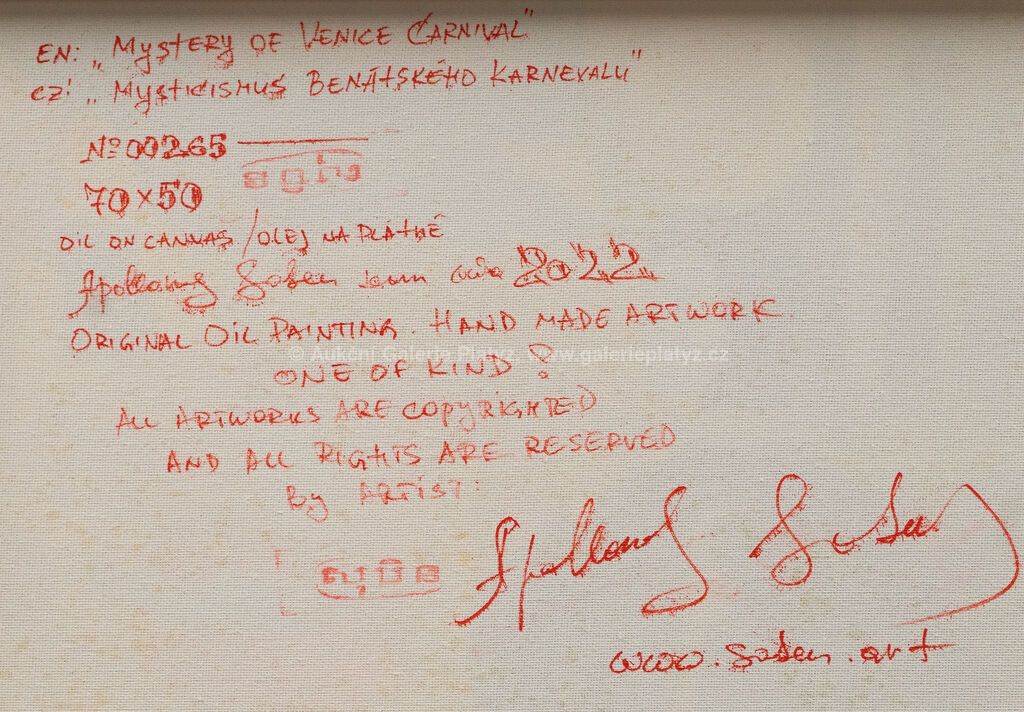 EN: „MYSTERY OF VENICE CARNIVAL"
CZ: „MYSTICISMUS BENÁTSKÉHO KARNEVALU"
Nº 00265
70×50
OIL ON CANVAS / OLEJ NA PLÁTNĚ
2022
ORIGINAL OIL PAINTING. HAND MADE ARTWORK.
© Aukční Galerie Platýz, www.galerieplatyz.cz
ONE OF KIND!
ALL ARTWORKS ARE COPYRIGHTED
AND ALL RIGHTS ARE RESERVED
By ARTIST: